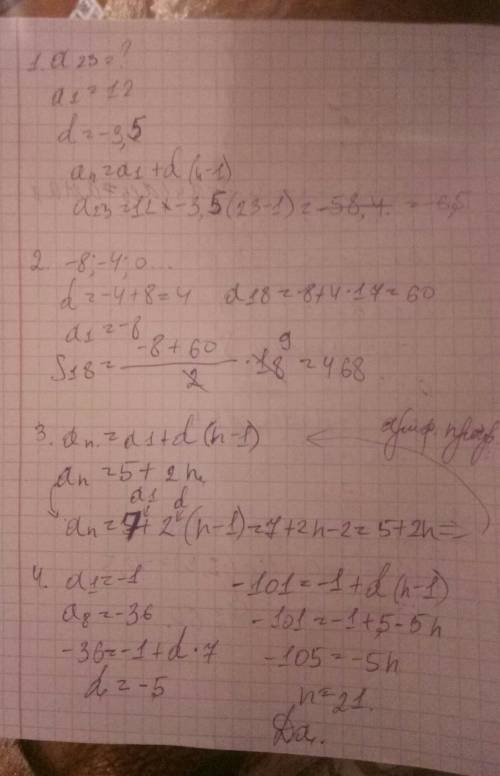 1. a₂₃=?
a₁=12
d=-3,5
aₙ=a₁+d(n-1)
a₂₃=12+-3,5(23-1)=-58,4. =-65
2. -8;-4;0...
d=-4+8=4 a₁₈=-8+4·17=60
a₁=-8
S₁₈= (-8+60)/2 · 18 9 =468.
3. aₙ=a₁+d(n-1)
ариф. прогр.
aₙ=5+2n
a₁ d
aₙ=7+2(n-1)=7+2n-2=5+2n=>
4. a₁=-1 -101=-1+d(n-1)
a₈=-36 -101=-1+5-5n
-36=-1+d·7 -105=-5n
d=-5 n=21.
Да.